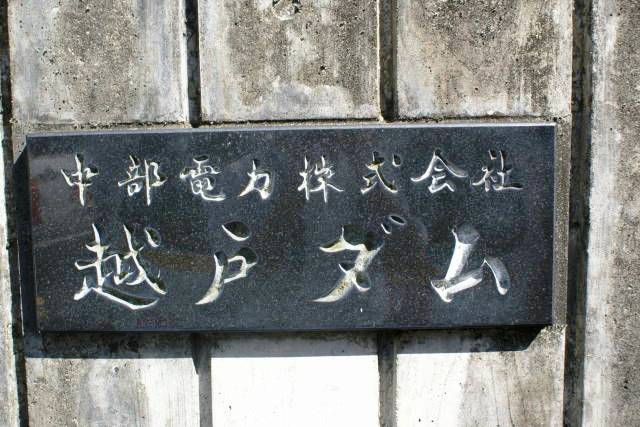 中部電力株式会社
越戸ダム